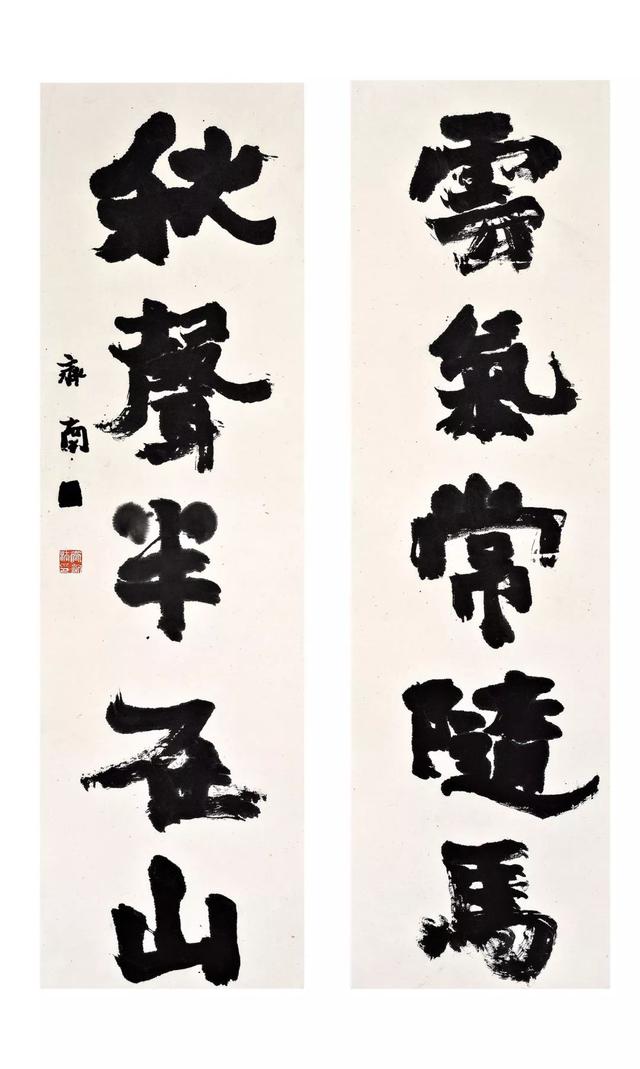 雲氣常隨馬
秋聲半在山